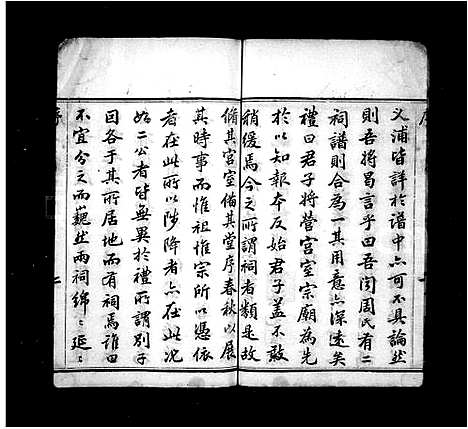 序
義浦皆詳於譜中亦可不具論然
則吾將曷言乎曰吾閔周氏有二
祠譜則合為一其用意亦深遠矣
禮曰君子將營宫室宗廟為先
於以知報本反始君子蓋不敢
稍緩焉今之所謂祠者類是故
脩其宫室備其堂序春秋以展
其時事而惟祖惟宗所以憑依
者在此所以陟降者亦在此況
始二公者皆無異於禮所謂別子
曰各于其所居地而有祠焉誰曰
不宜分之而巍然兩祠綿〻延〻
序
二